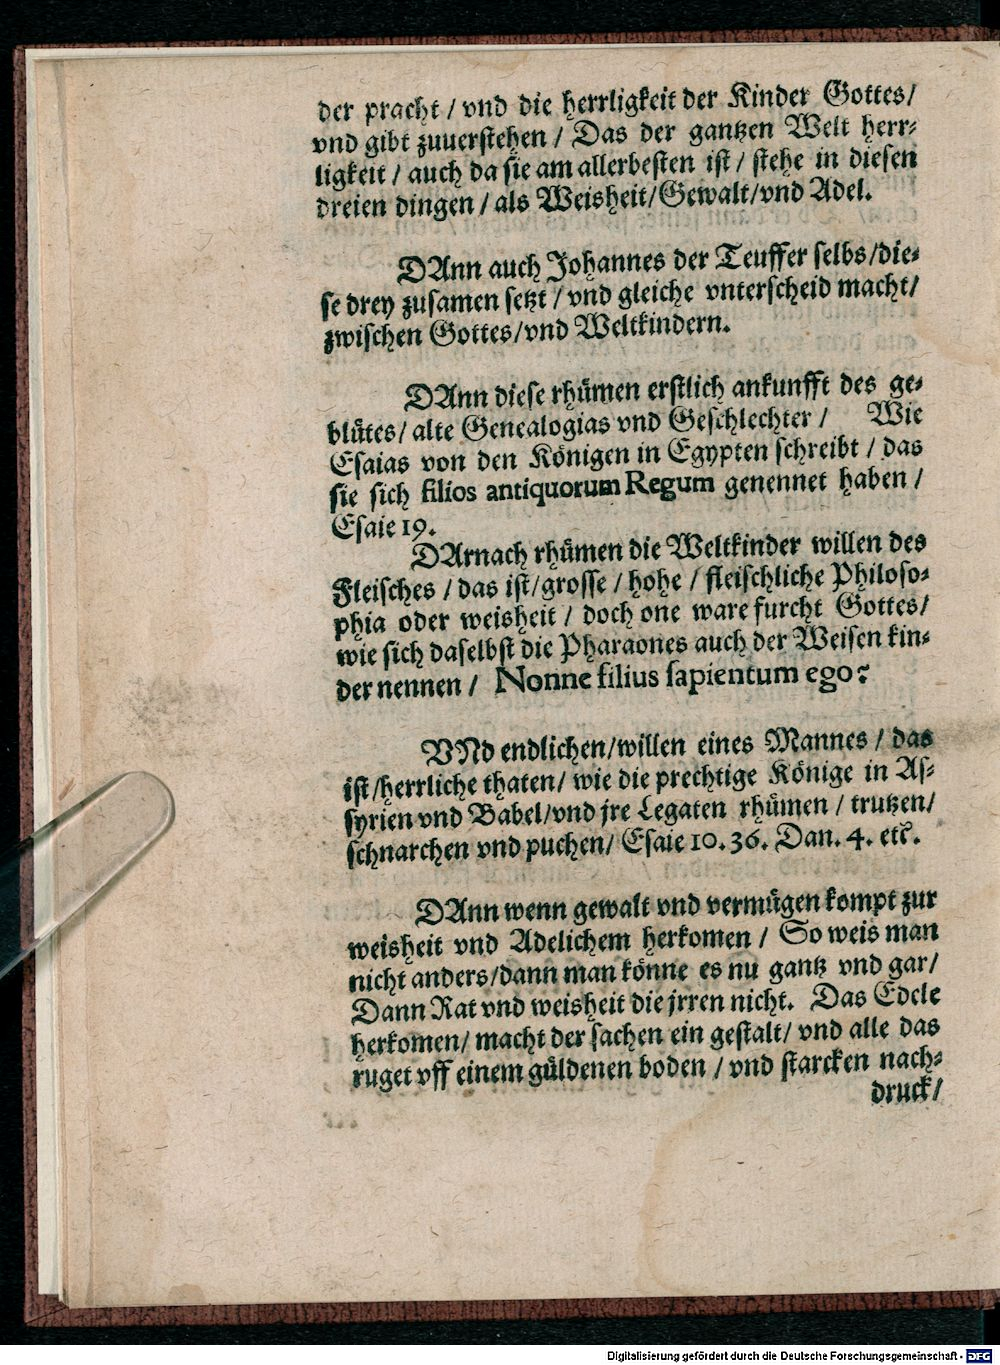 der pracht / vnd die herrligkeit der Kinder Gottes /
vnd gibt zuuerstehen / Das der gantzen Welt herr-
ligkeit / auch da sie am allerbesten ist / stehe in diesen
dreien dingen / als Weisheit / Gewalt / vnd Adel.
DAnn auch Johannes der Teuffer selbs / die-
se drey zusamen setzt / vnd gleiche vnterscheid macht /
zwischen Gottes / vnd Weltkindern.
DAnn diese rhümen erstlich ankunfft des ge-
blütes / alte Genealogias vnd Geschlechter / Wie
Esaias von den Königen in Egypten schreibt / das
sie sich filios antiquorum Regum genennet haben /
Esaie 19.
DArnach rhümen die Weltkinder willen des
Fleisches / das ist / grosse / hohe / fleischliche Philoso-
phia oder weisheit / doch one ware furcht Gottes /
wie sich daselbst die Pharaones auch der Weisen kin-
der nennen / Nonne filius sapientum ego?
VNd endlichen / willen eines Mannes / das
ist / herrliche thaten / wie die prechtige Könige in As-
syrien vnd Babel / vnd jre Legaten rhümen / trutzen /
schnarchen vnd puchen / Esaie 10. 36. Dan. 4. etc.
DAnn wenn gewalt vnd vermügen kompt zur
weisheit vnd Adelichem herkomen / So weis man
nicht anders / dann man könne es nu gantz vnd gar /
Dann Rat vnd weisheit die jrren nicht. Das Edele
herkomen / macht der sachen ein gestalt / vnd alle das
ruget vff einem güldenen boden / vnd starcken nach-
druck /
Digitalisierung gefördert durch die Deutsche Forschungsgemeinschaft - DFG